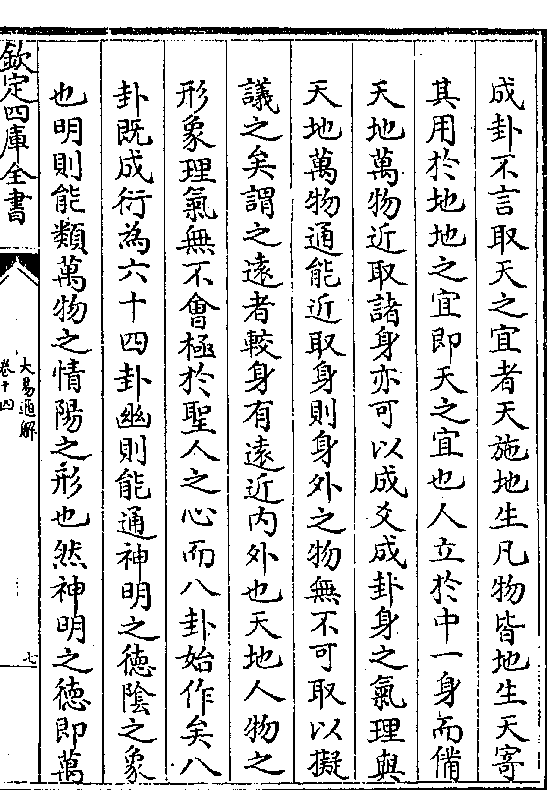 成卦不言取天之宜者天施地生凡物皆地生天寄
其用於地地之宜即天之宜也人立於中一身而備
天地萬物近取諸身亦可以成爻成卦身之氣理與
天地萬物通能近取身則身外之物無不可取以擬
議之矣謂之遠者較身有遠近内外也天地人物之
形象理氣無不會極於聖人之心而八卦始作矣八
卦既成衍為六十四卦幽則能通神明之德陰之象
也明則能類萬物之情陽之形也然神明之德即萬
欽定四庫全書
大易通解
卷十四
七